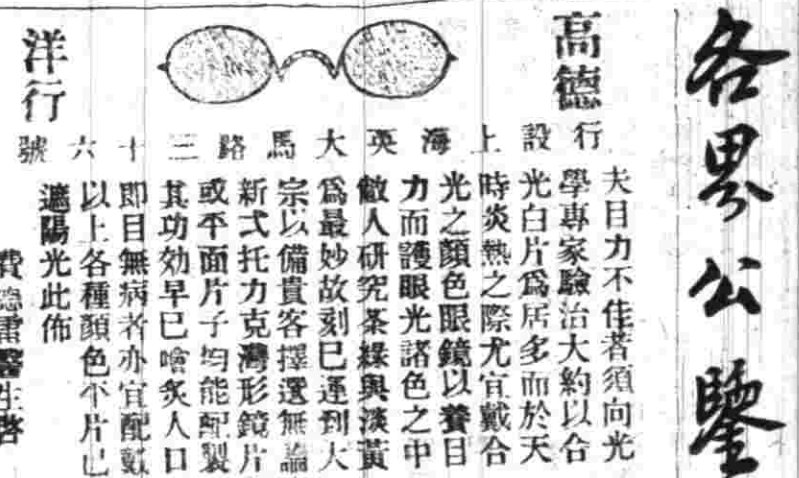 各界公鑒
高德
洋行
行設上海英大馬路三十六號
夫目力不佳者須向光
學專家驗治大約以合
光白片爲居多而於天
時炎熱之際尤宜戴合
光之顏色眼鏡以養目
力而護眼光諸色之中
敝人研究茶綠與淡黃
爲最妙故刻已運到大
宗以備貴客擇選無論
新式托力克灣形鏡片
或平面片子均能配製
其功効早已噲炙人口
即目無病者亦宜配戴
以上各種顏色平片以
遮陽光此佈
費總雷醫生啓